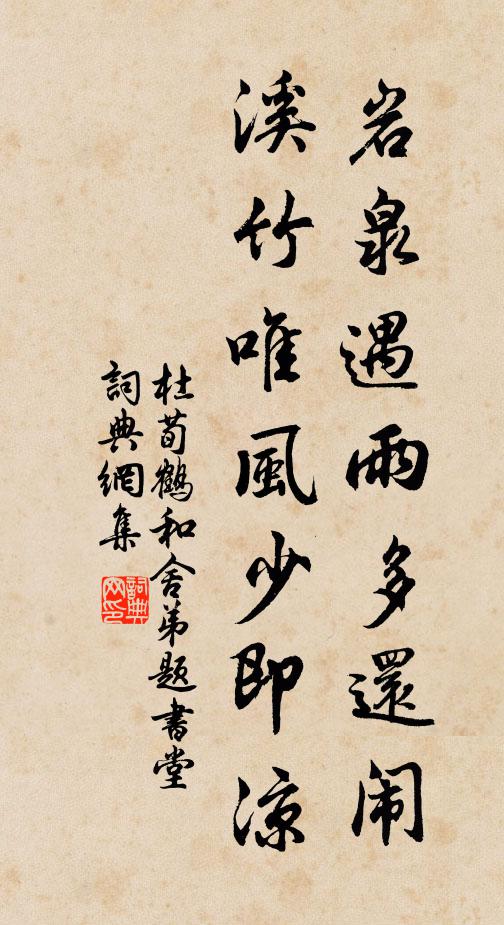 岩泉遇雨多還闹
溪竹唯風少即涼
杜荀鶴和舍弟題書堂
詞典網集
詞典网印